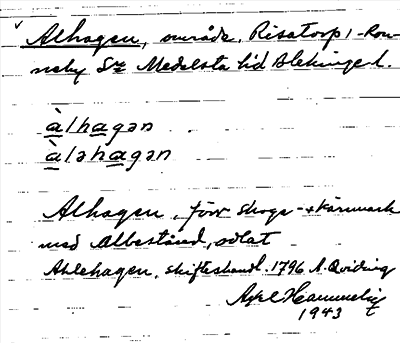 Alhagen, område, Risatorp, Ron-
neby Sn Medelsta hd Blekinge l.
àlhagən
àləhagən
Alhagen, förr skogs- o kärrmark
med albestånd, odlat
Ahlehagen, skifteshandl. 1796 A. Qviding
Axel Hammelin
1943